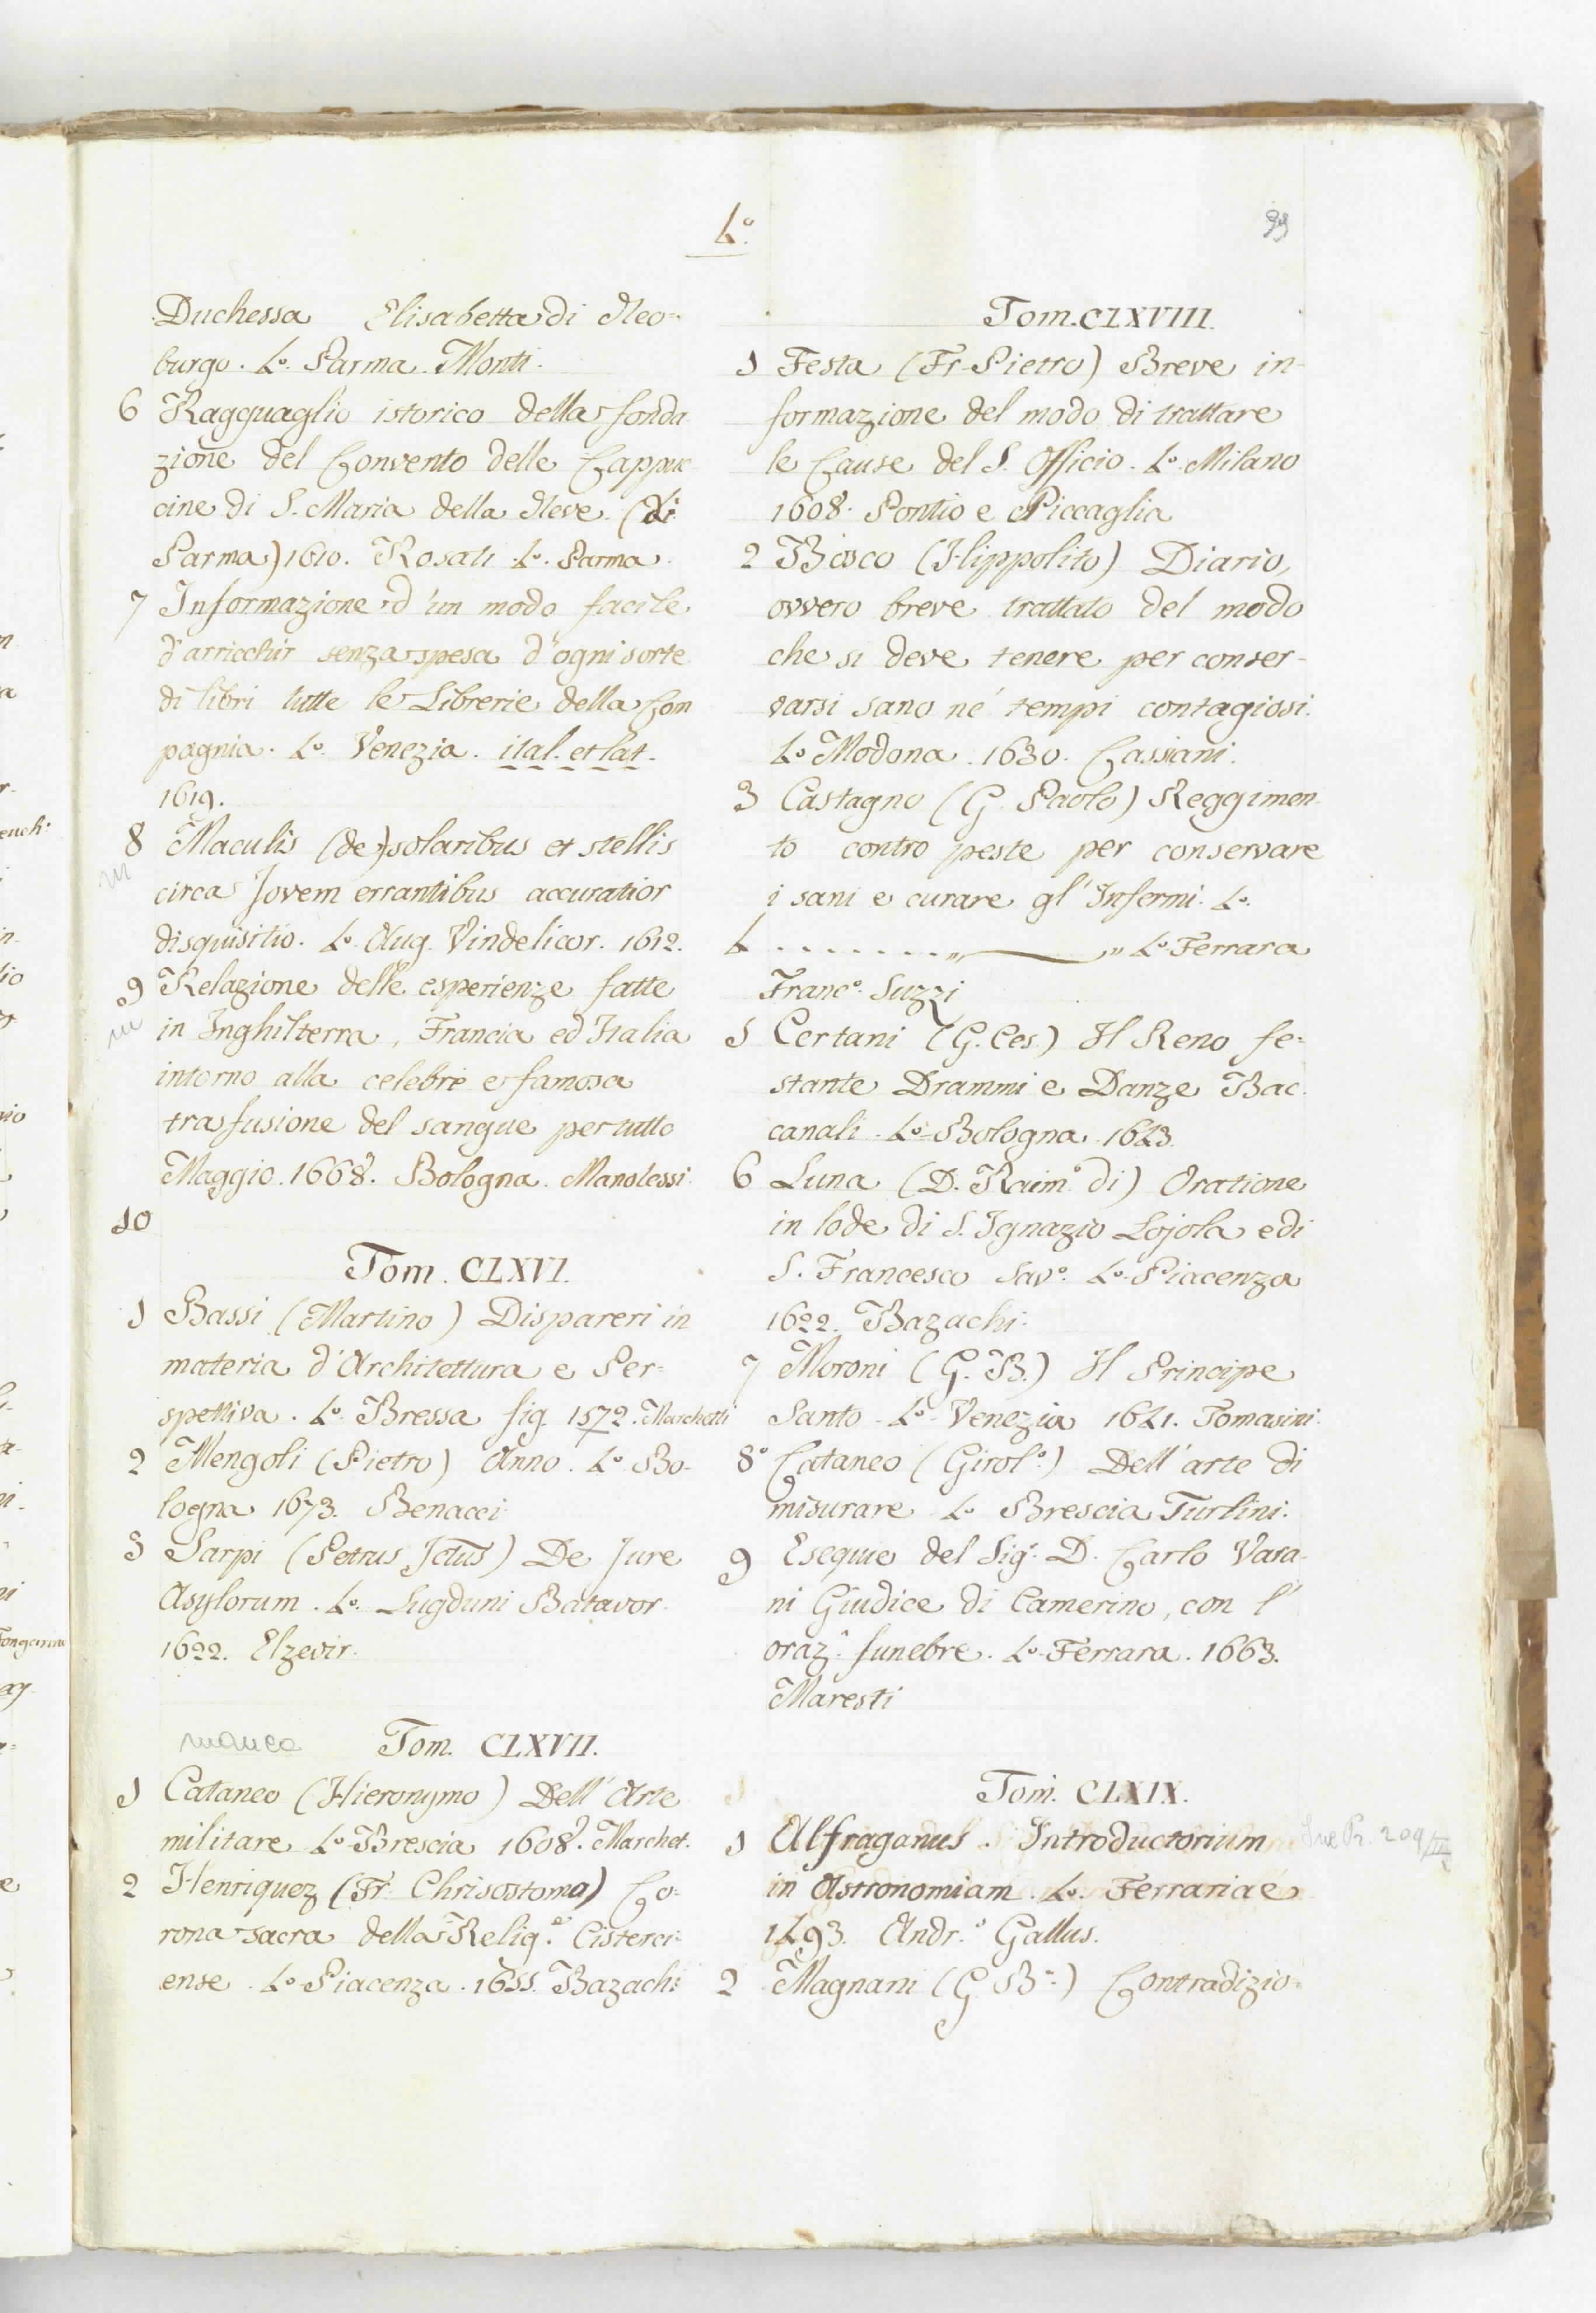 4.º
99
Duchessa Elisabetta di Neo=
burgo. 4.º Parma. Monti.
6 Ragguaglio istorico della fonda
zione del Convento delle Cappuc
cine di S. Maria della Neve (di
Parma) 1610. Rosati 4.º Parma.
7 Informazione d'un modo facile
d'arricchir senza spesa d'ogni sorte
di libri tutte le Librerie della Com
pagnia. 4.º Venezia. ital. et lat.
1619.
8 Maculis (de) solaribus et stellis
circa Jovem errantibus accuratior
disquisitio. 4.º Aug. Vindelicor. 1612.
9 Relazione delle esperienze fatte
in Inghilterra, Francia ed Italia
intorno alla celebre e famosa
trasfusione del sangue per tutto
Maggio. 1668. Bologna. Manolessi
10
Tom. CLXVI.
1 Bassi (Martino) Dispareri in
materia d'Architettura e Per=
spettiva. 4.º Bressa fig. 1572. Marchetti
2 Mengoli (Pietro) Anno. 4.º Bo-
logna 1673. Benacci
3 Sarpi (Petrus Jctus) De Jure
Asylorum. 4.º Lugduni Batavor.
1622. Elzevir.
manca Tom. CLXVII.
1 Cataneo (Hieronymo) Dell'Arte
militare 4.º Brescia 1608. Marchet.
2 Henriquez (Fr. Chrisostomo) Co=
rona sacra della Relig.e Cisterci=
ense. 4.º Piacenza. 1655. Bazachi
Tom. CLXVIII.
1 Festa (Fr. Pietro) Breve in-
formazione del modo di trattare
le Cause del S. Officio. 4.º Milano
1608. Pontio e Piccaglia
2 Bosco (Hippolito) Diario,
ovvero breve trattato del modo
che si deve tenere per conser-
varsi sano né tempi contagiosi.
4.º Modona. 1630. Cassiani.
3 Castagno (G. Paolo) Reggimen
to contro peste per conservare
i sani e curare gl'Infermi. 4.º
4 ........,, ——— ,, 4.º Ferrara
Franc.º Suzzi
5 Certani (G. Ces.) Il Reno fe=
stante Drammi e Danze Bac
canali. 4.º Bologna. 1623.
6 Luna (D. Raim.º di) Oratione
in lode di S. Ignazio Lojola e di
S. Francesco Sav.º 4.º Piacenza
1622. Bazachi.
7 Moroni (G. B.) Il Principe
Santo. 4.º Venezia 1641. Tomasini.
8º Cataneo (Girol.º) Dell'arte di
misurare 4.º Brescia Turlini.
9 Esequie del Sig.r D. Carlo Vara-
ni Giudice di Camerino, con l'
oraz.e funebre. 4.º Ferrara. 1663.
Maresti
Tom. CLXIX.
1 Alfraganus. Introductorium
in Astronomiam. 4.º Ferrariae
1493. Andr.s Gallus.
2 Magnani (G. B.a) Contradizio=